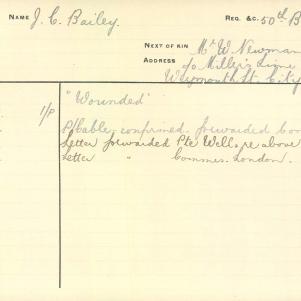 NAME J. C. Bailey. REG. &c. 50th B
NEXT OF KIN Mr W. Newman
ADDRESS c/o Miller's Lime
Weymouth St.
"Wounded"
1/P Cable confirmed. forwarded
Letter forwarded Pte Wells, re above
Letter " Commes. London.